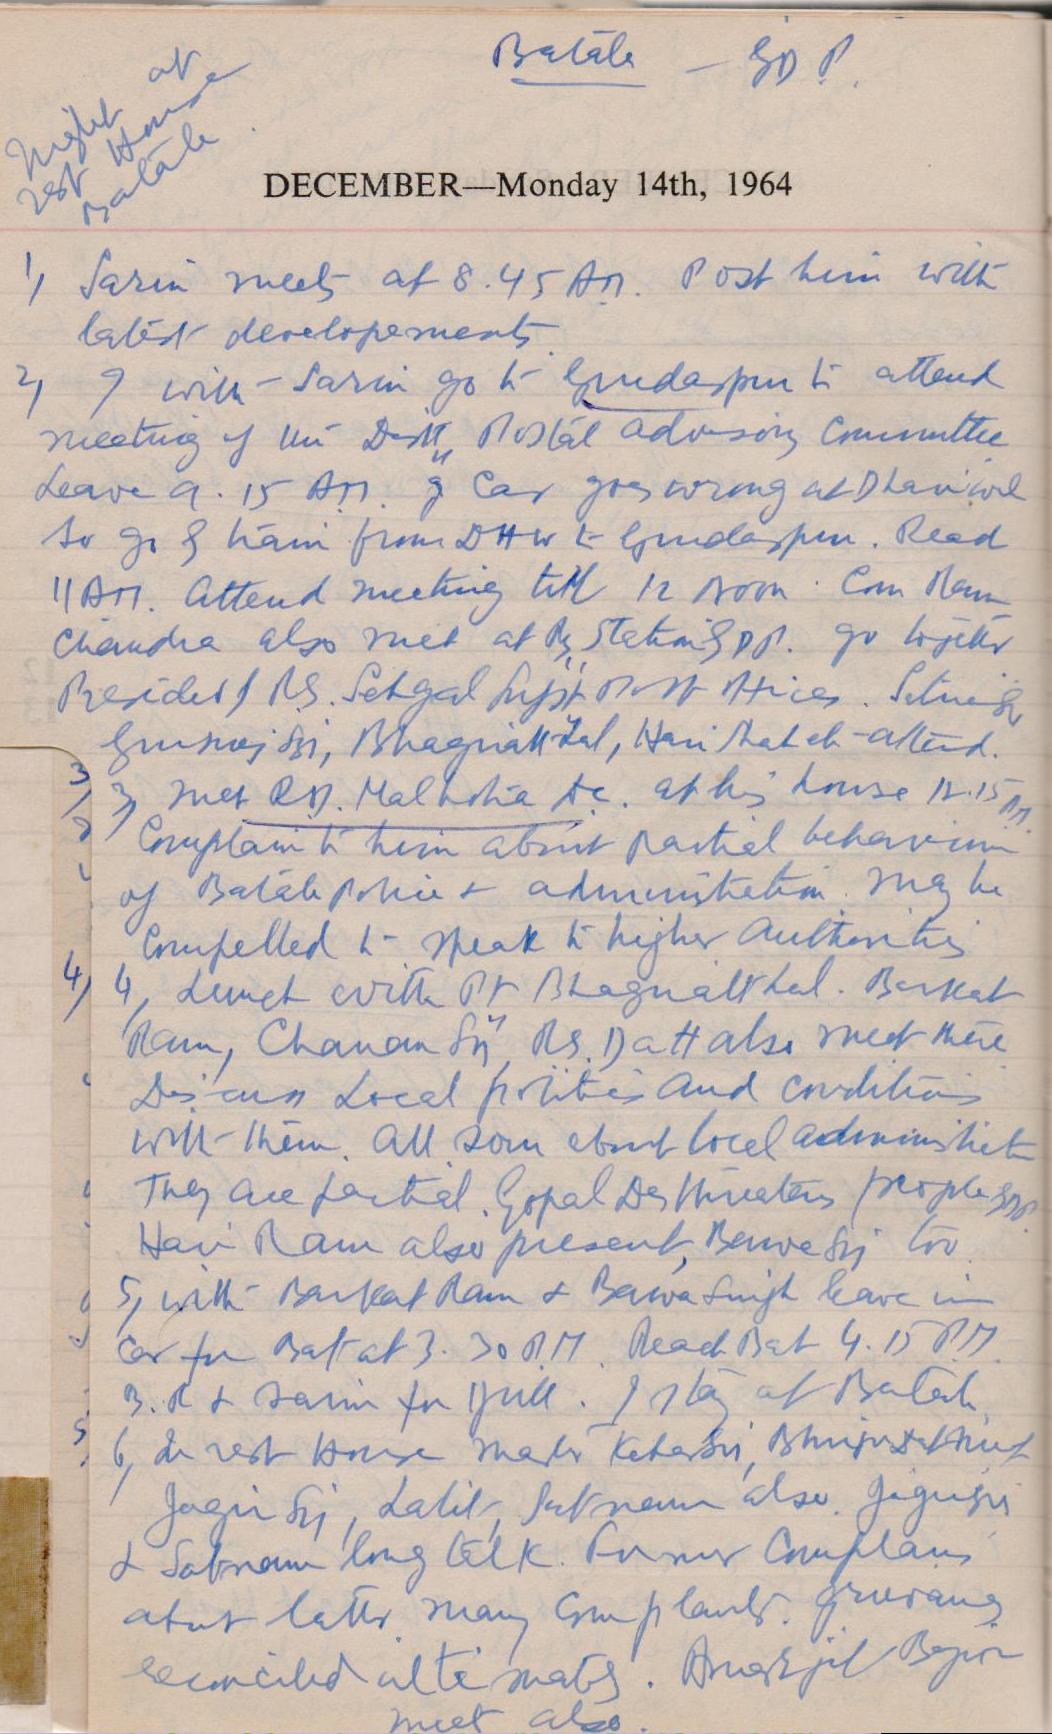 Batala - GDP.
Night at
rest House
Batala.
DECEMBER—Monday 14th, 1964
1, Sarin meets at 8.45 AM. Post him with
latest developements.
2, I with Sarin go to Gurdaspur to attend
meeting of the Distt, Postal advisory Committee
Leave 9.15 AM. Car goes wrong at Dhariwal
So go by train from DHW to Gurdaspur. Reach
11 AM. Attend meeting till 12 noon. Com Ram
Chandra also met at Ry Station GDP. go together
Besides RS. Sehgal Supt Post Offices.
Bhagnath Lal, Hari attend.
3/ 3, Met R.N. Malhotra DC. at his house 12.15 PM.
Complain to him about partial behaviour
of Batala Police & administration. May be
Compelled to speak to higher Authorities
4/ 4, Lunch with Pt Bhagnath Lal. Barkat
Ram, Chanan Sij, RS. Datt also meet there
Discuss Local politics and conditions
with them. All sour about local administ
They are partial. Gopal Das threatens people GDP
Hari Ram also present, Bawa Sij too
5, with Barkat Ram & Bawa Singh leave in
Car for Bat at 3.30 P.M. Reach Bat 4.15 P.M.
B.R & Sarin for Jull. I stay at Batala
6, In rest House Master Kehar Sij,
Jagir Sij, Lalit, Satnam also. Jagir Sij
& Satnam long talk. Former Complains
about latter many Complaints. grievances
reconciled ultimately. Amarjit
meet also.